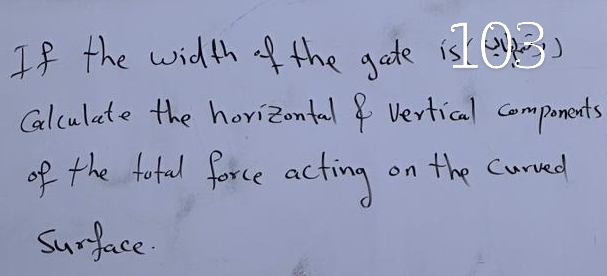 If the width of the gate is 103
Calculate the horizontal & Vertical Components
of the total force acting on the Curved
Surface.